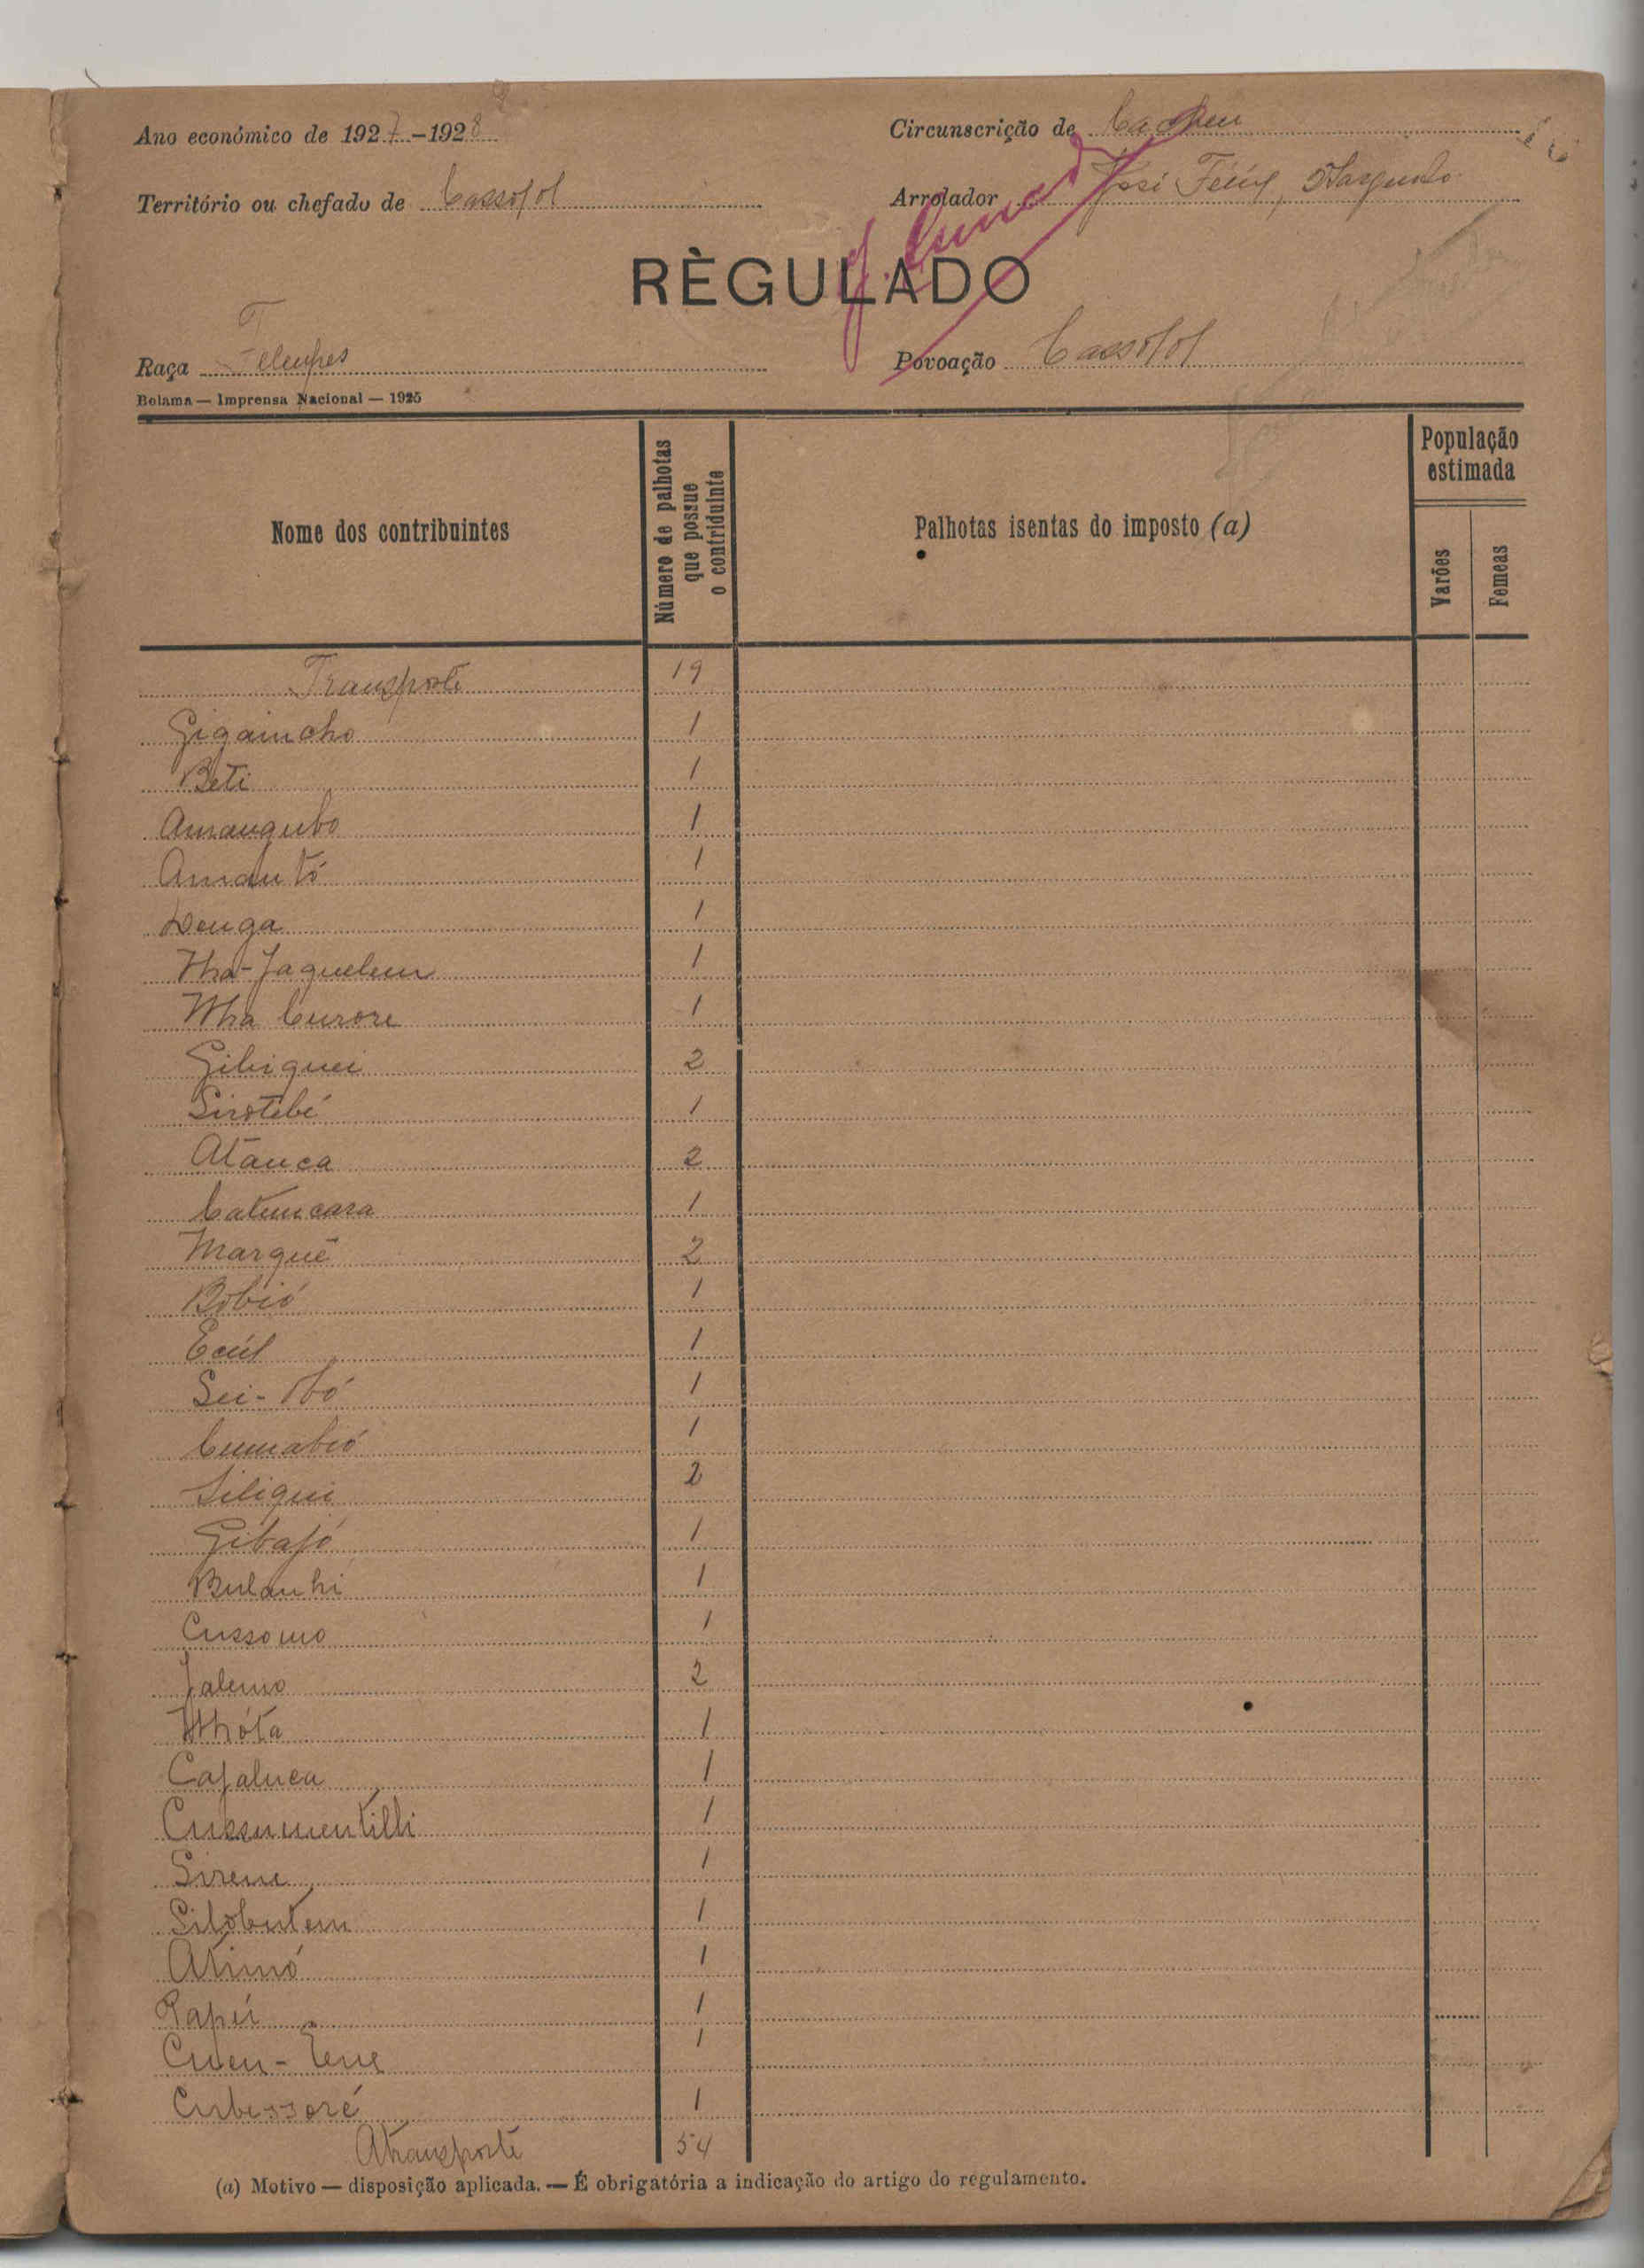 Ano económico de 1927-1928
Circunscrição de Cacheu
Território ou chefado de Cassolol
Arrolador José Sargento
RÈGULADO
Raça Felupes
Povoação Cassolol
Bolama — Imprensa Nacional — 1925
Nome dos contribuintes
Número de palhotas
que possue
o contriduinte
Palhotas isentas do imposto (a)
População
estimada
Varões
Femeas
Transporte 19
Gigaincho 1
Beti 1
Amangubo 1
Amantó 1
Denga 1
Nha-Jaquelem 1
Nha Curore 1
Gibiquei 2
Sirotebé 1
Atanca 2
Catumcara 1
Marquê 2
Bobió 1
Ecúl 1
Sei-Obó 1
Cumabió 1
Siliqui 2
Gibajó 1
Bulanhi 1
Cussomo 1
Jalemo 2
Nhóta 1
Cajaluca 1
Cussumentilhi 1
Sirene 1
Silobutem 1
Atimó 1
Papei 1
Cuen-Tene 1
Cubessoré 1
A transporte 54
(a) Motivo — disposição aplicada. — É obrigatória a indicação do artigo do regulamento.